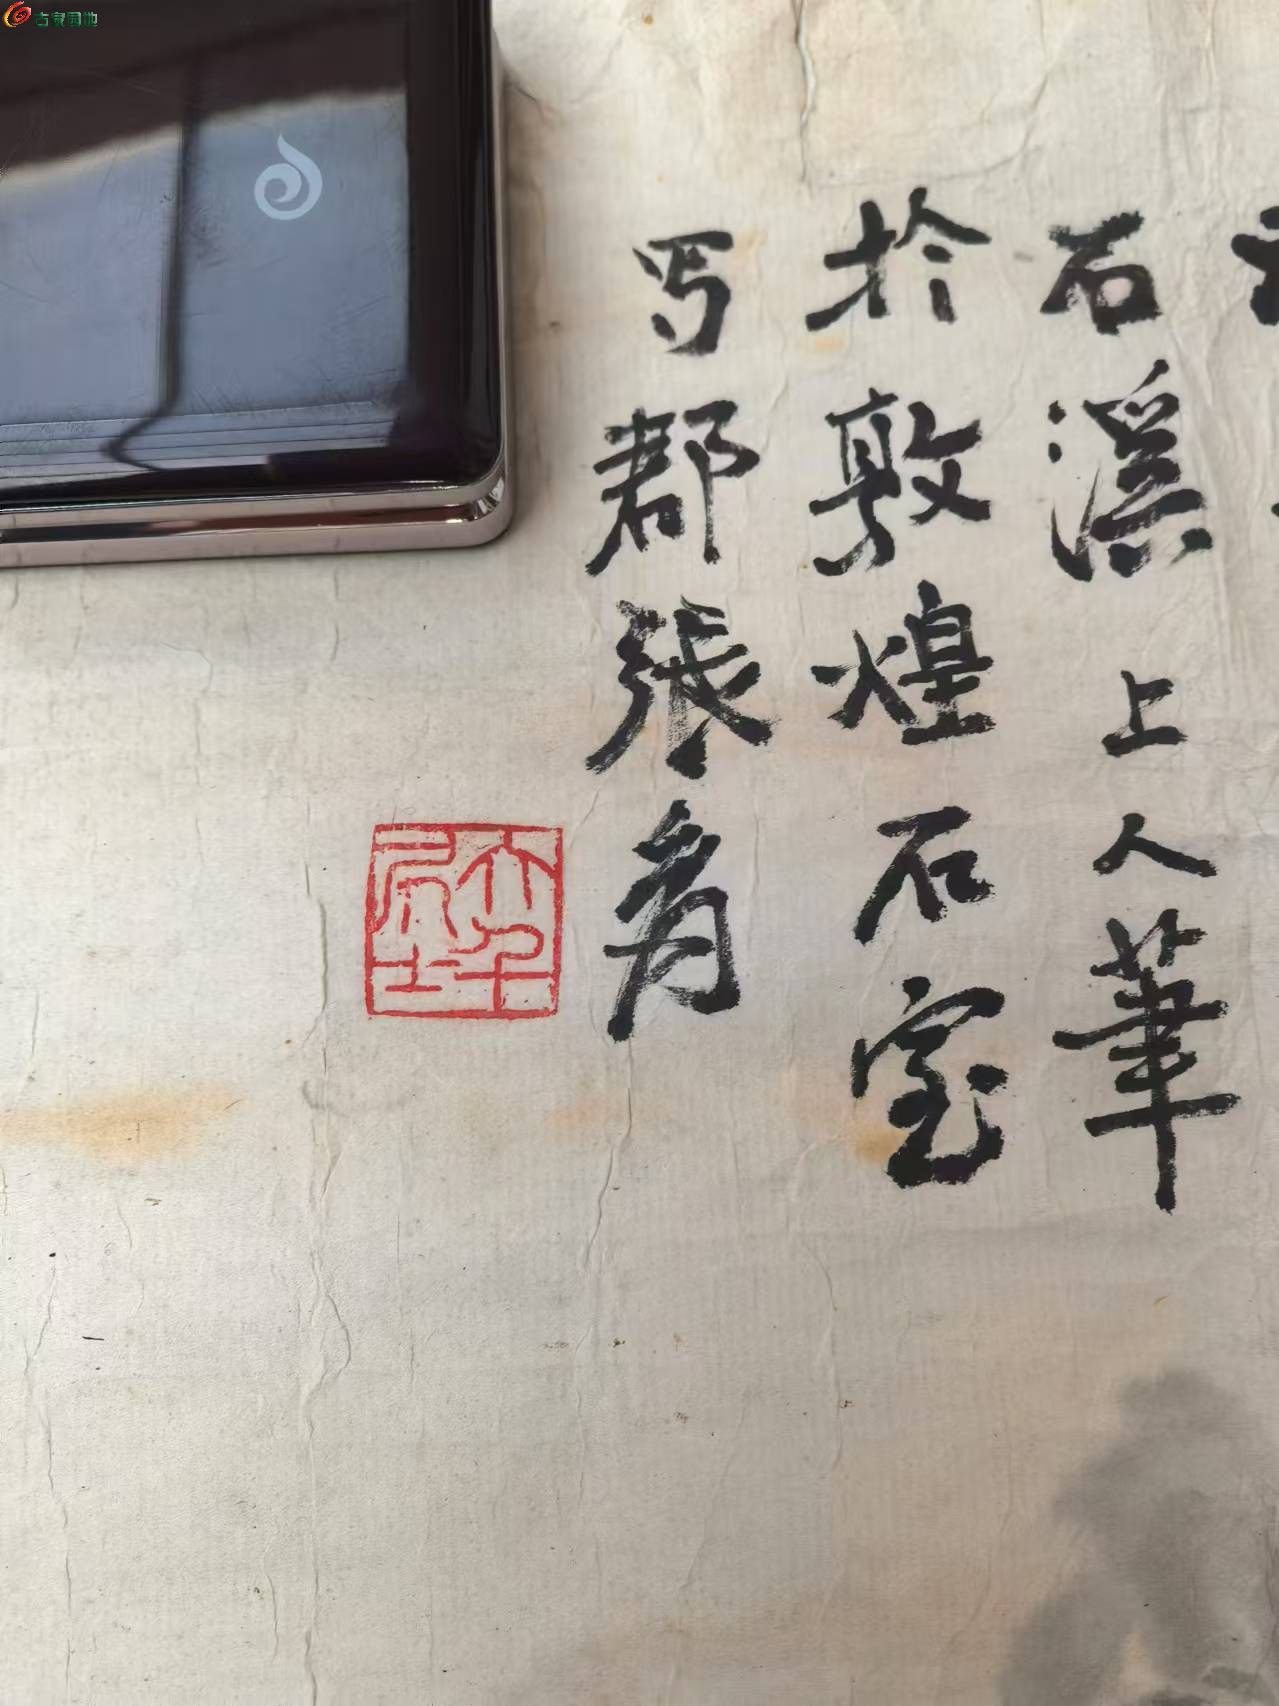 石溪上人筆
於敦煌石室
蜀郡張爰
大千居士
古泉园地